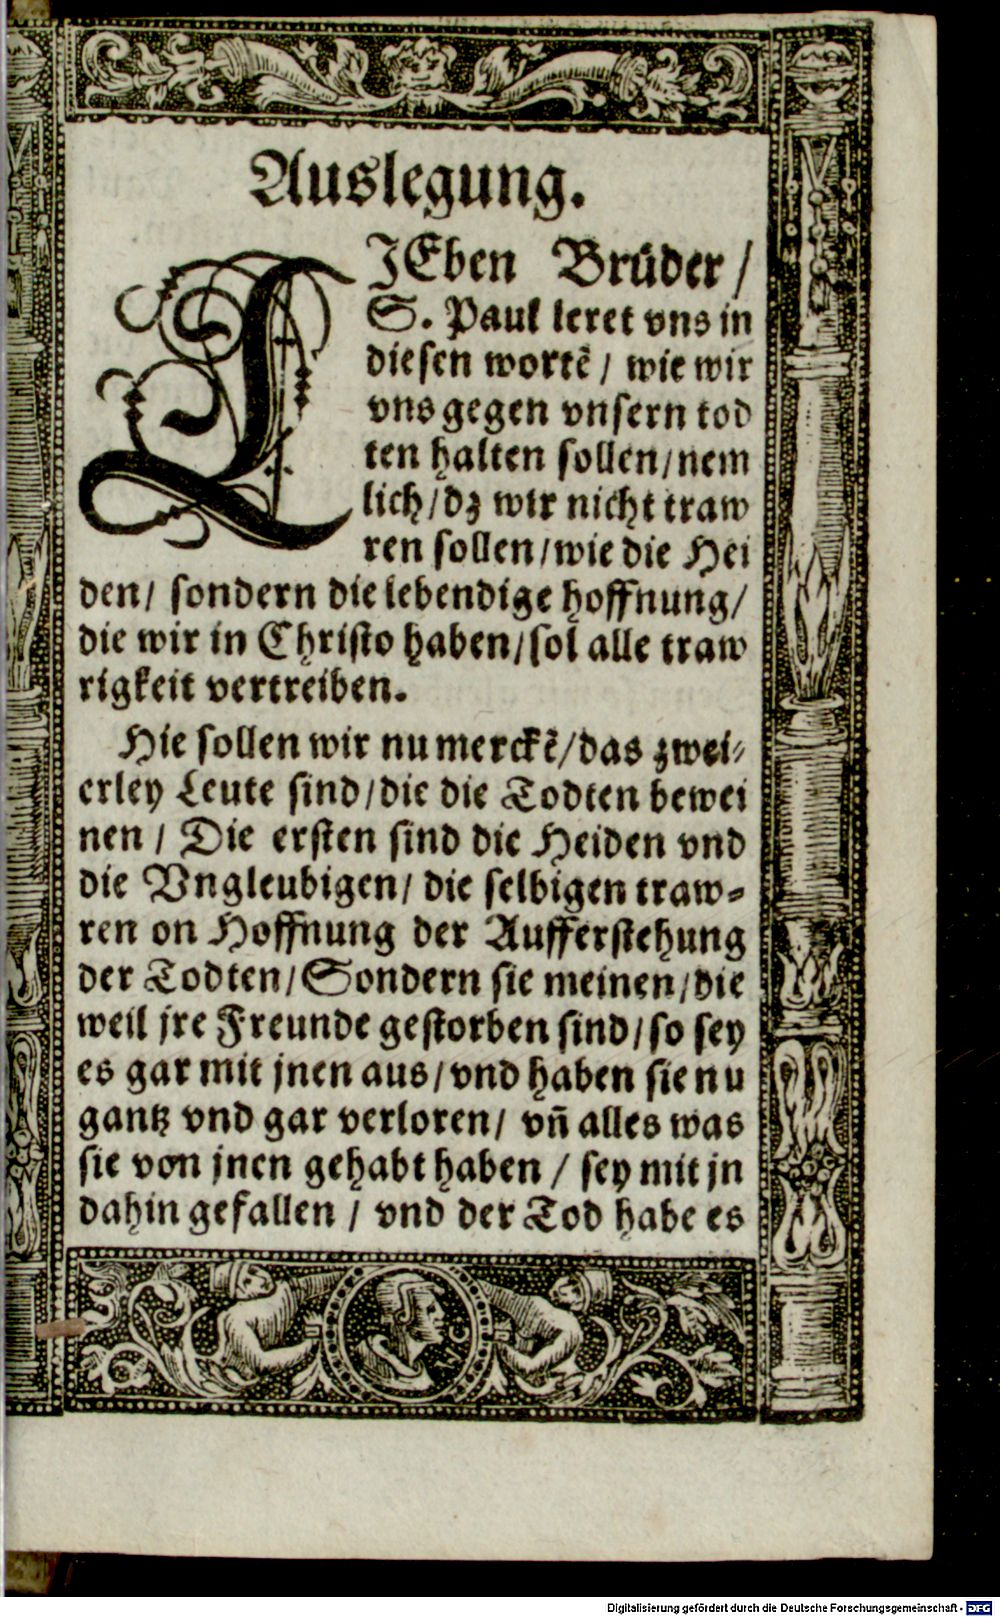 Auslegung.
LIEben Brüder /
S. Paul leret vns in
diesen wortē / wie wir
vns gegen vnsern tod
ten halten sollen / nem
lich / dz wir nicht traw
ren sollen / wie die Hei
den / sondern die lebendige hoffnung /
die wir in Christo haben / sol alle traw
rigkeit vertreiben.
Hie sollen wir nu merckē / das zwei-
erley Leute sind / die die Todten bewei
nen / Die ersten sind die Heiden vnd
die Vngleubigen / die selbigen traw-
ren on Hoffnung der Aufferstehung
der Todten / Sondern sie meinen / die
weil jre Freunde gestorben sind / so sey
es gar mit jnen aus / vnd haben sie nu
gantz vnd gar verloren / vn̄ alles was
sie von jnen gehabt haben / sey mit jn
dahin gefallen / vnd der Tod habe es
Digitalisierung gefördert durch die Deutsche Forschungsgemeinschaft - DFG